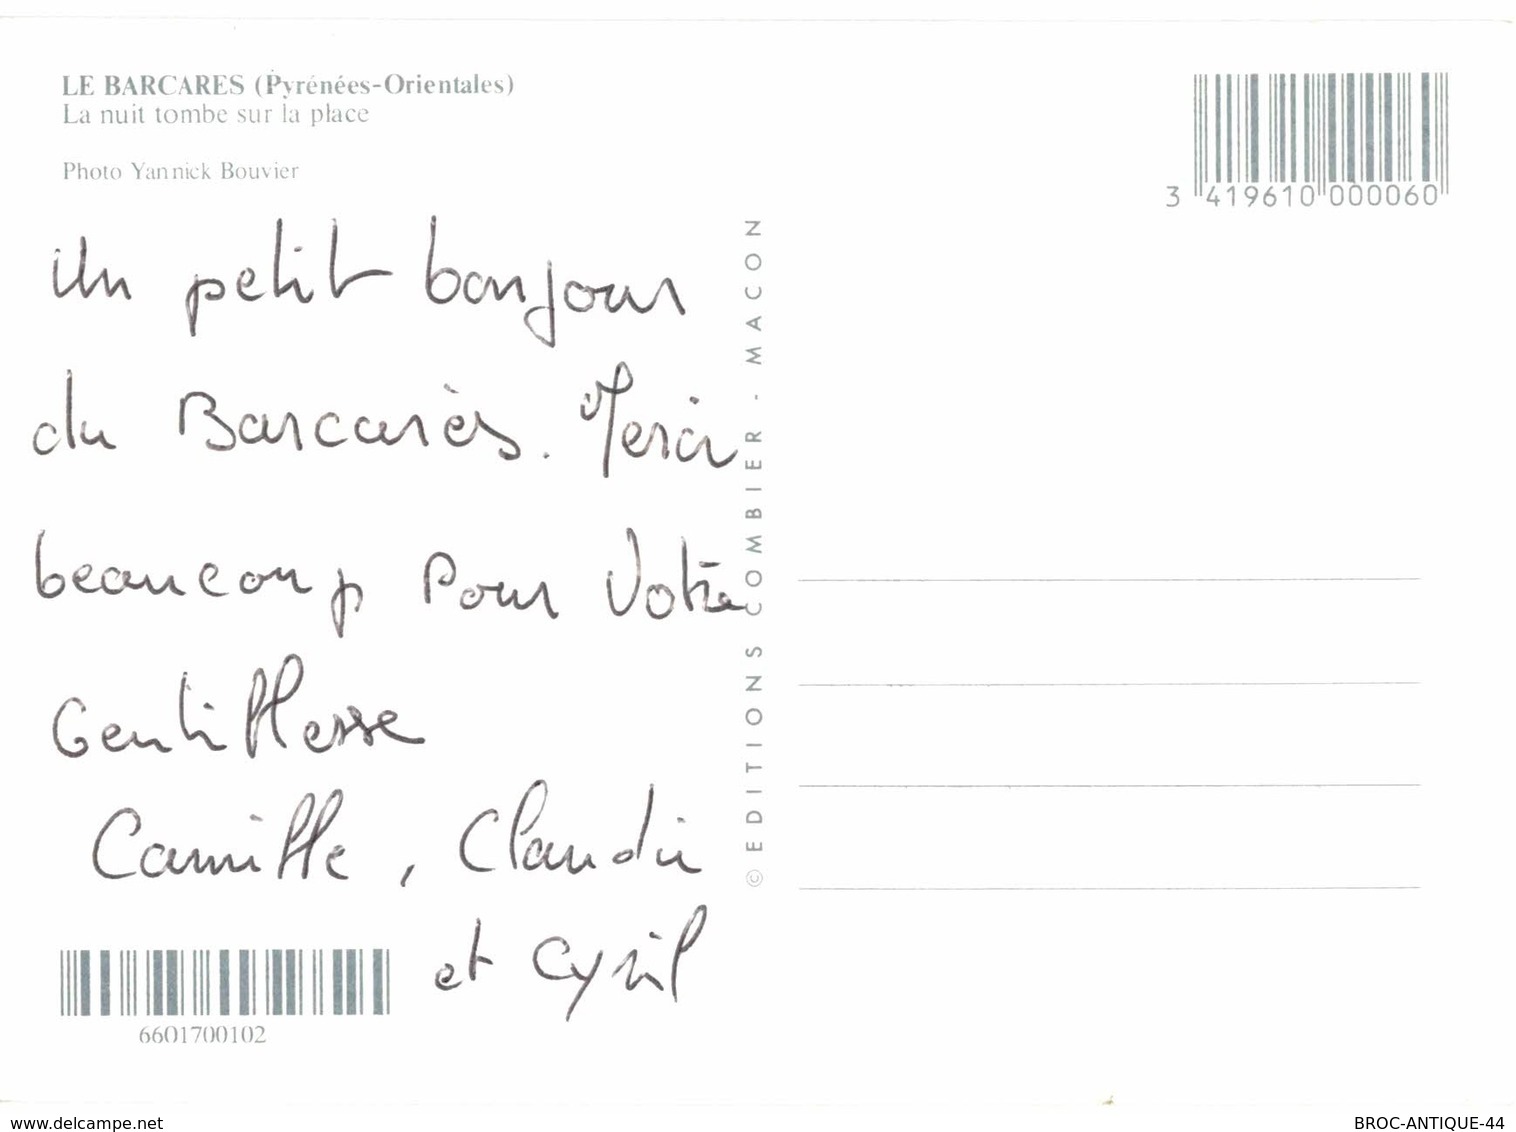 LE BARCARES (Pyrénées-Orientales)
La nuit tombe sur la place
Photo Yannick Bouvier
3 419610 000060
Un petit bonjour
du Barcarès. Merci
beaucoup pour votre
Gentillesse
Camille, Claudie
et Cyril
© EDITIONS COMBIER - MACON
6601700102
www.delcampe.net
BROC-ANTIQUE-44